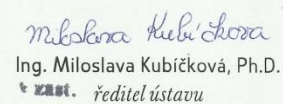 Miloslava Kubíčkova
Ing. Miloslava Kubíčková, Ph.D.
v zast. ředitel ústavu